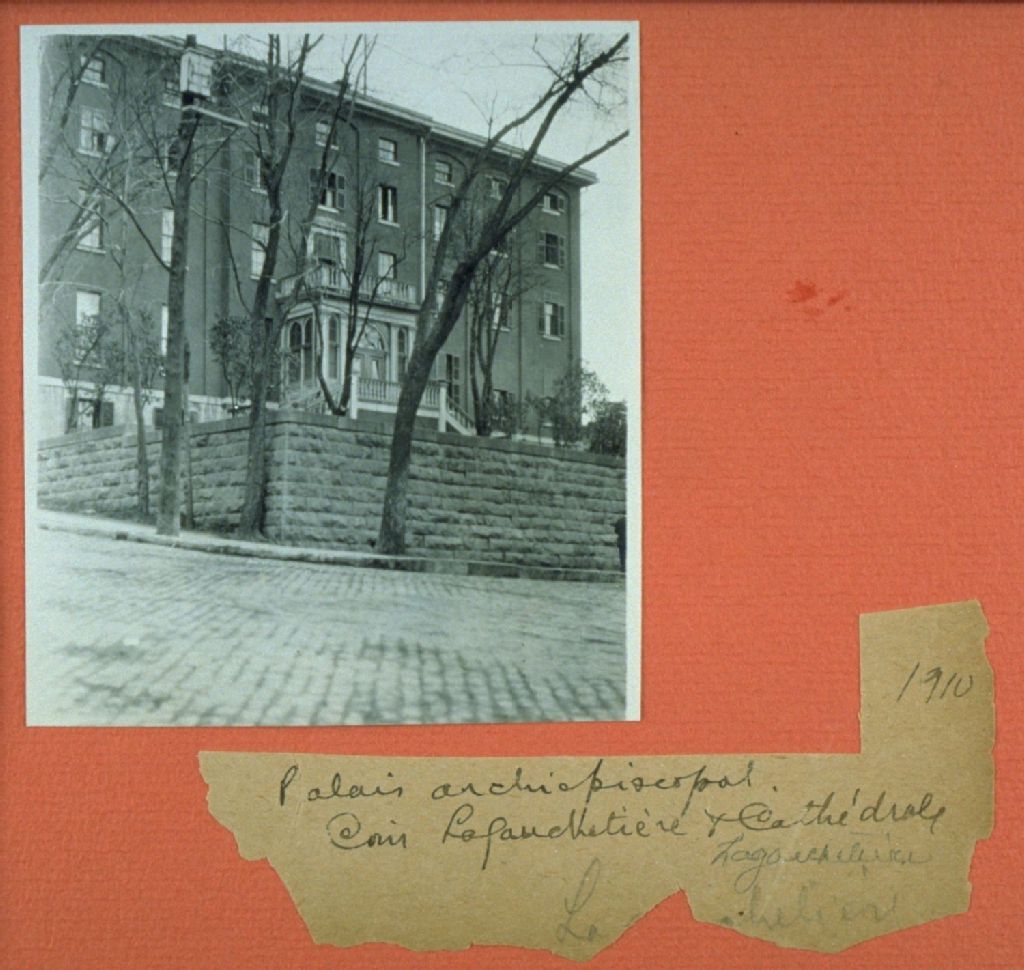 1910
Palais archiépiscopal.
Coin Lagauchetière & Cathédrale
Lagauchetière